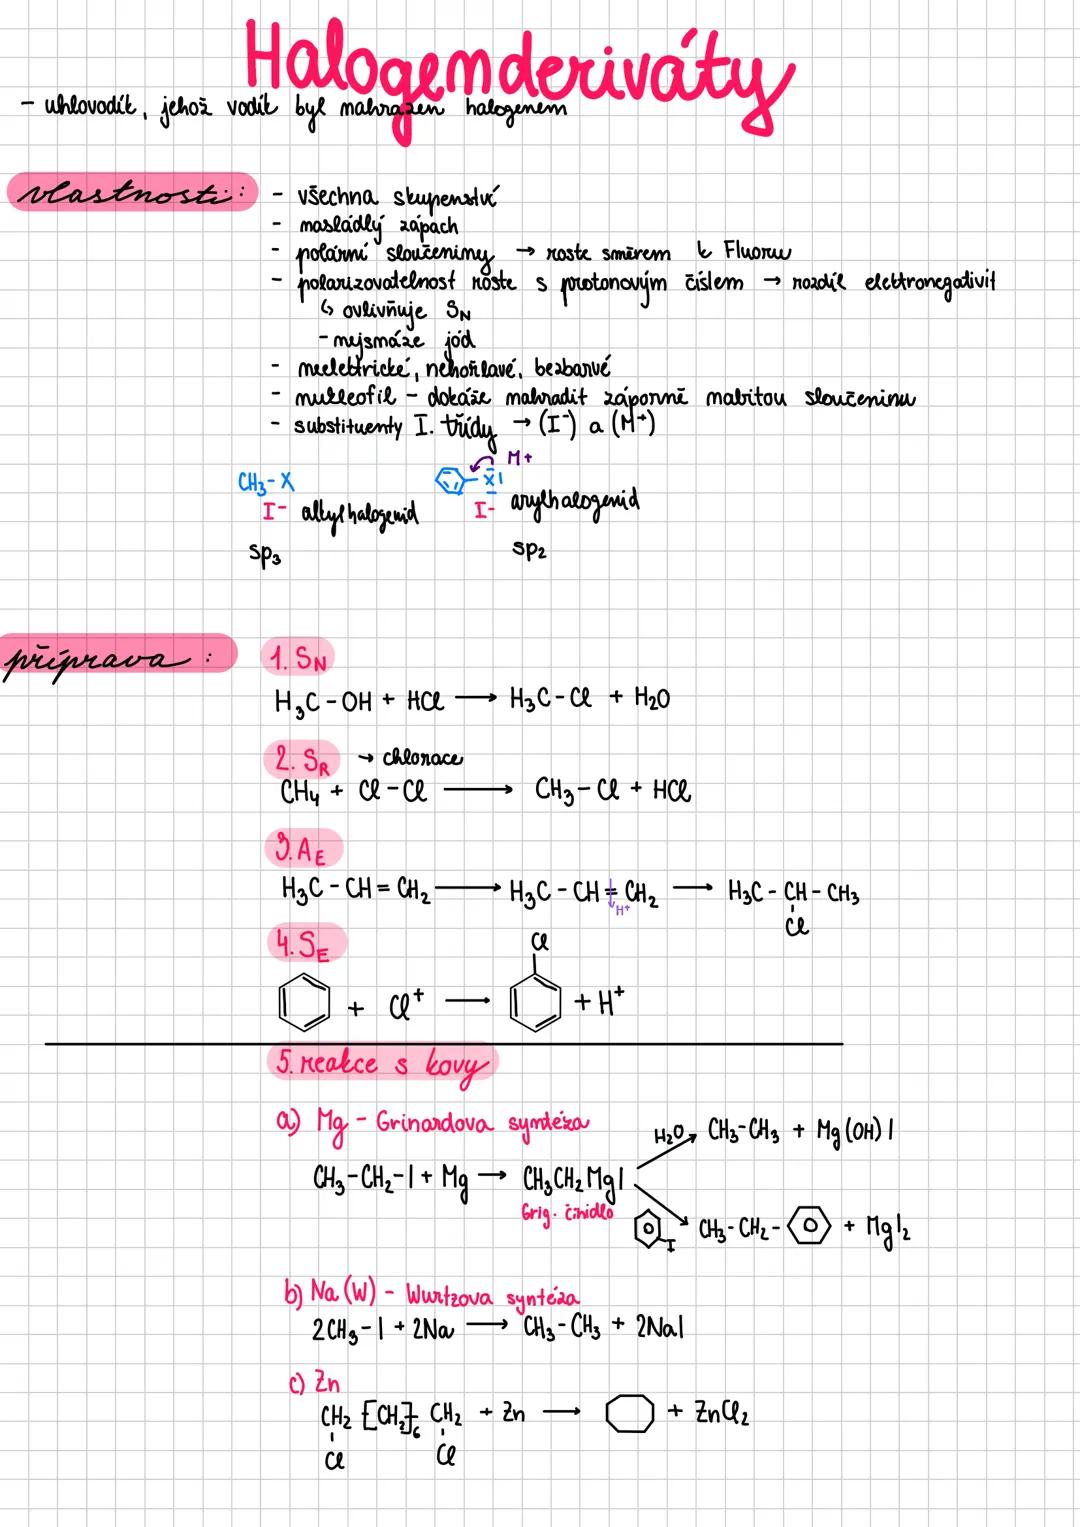 Halogenderiváty
- uhlovodík, jehož vodík byl nahrazen halogenem
vlastnosti:
- všechna skupenství
- nasládlý zápach
- polární sloučeniny → roste směrem k Fluoru
- polarizovatelnost roste s protonovým číslem → rozdíl elektronegativit
↳ ovlivňuje SN
- nejsnáze jód
- neelektrické, nehořlavé, bezbarvé
- nukleofil - dokáže nahradit záporně nabitou sloučeninu
- substituenty I. třídy → (I-) a (M+)
M+
CH3-X
X|
I- alkylhalogenid
I- arylhalogenid
sp3
sp2
příprava:
1. SN
H3C-OH + HCl → H3C-Cl + H2O
2. SR → chlorace
CH4 + Cl-Cl → CH3-Cl + HCl
3. AE
H3C-CH=CH2 → H3C-CH=CH2 → H3C-CH-CH3
H+
Cl
4. SE
Cl
+ Cl+ → + H+
5. reakce s kovy
a) Mg - Grinardova syntéza
H2O CH3-CH3 + Mg(OH)I
CH3-CH2-I + Mg → CH3CH2MgI
Grig. činidlo
I CH3-CH2- + MgI2
b) Na (W) - Wurtzova syntéza
2CH3-I + 2Na → CH3-CH3 + 2NaI
c) Zn
CH2 [CH2]6 CH2 + Zn → + ZnCl2
Cl Cl